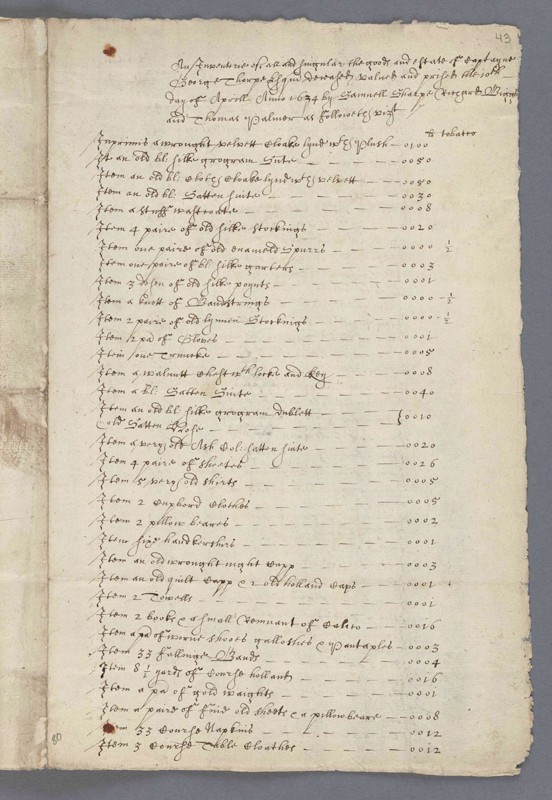 43
An Inventorie of all and singular the goods and estate of Captayne
George Thorpe Esquir deceased valued and prised the 10th
day of Aprill Anno 1634 by Samuell Sharpe Richard Biggs
and Thomas Palmer as followeth vizt
tt tobacco
Inprimis a wrought velvett Cloake lyned wth Plush — 0100
It an old bl. silke grogram Sute — 0050
Item an old bl: Cloth Cloake lyned wth velvett — 0050
Item an old bl: Satten suite — 0030
Item a stuff wastcoate — 0008
Item 4 paire of old silke Stockings — 0020
Item one paire of old enameld Spurrs — 0000 ½
Item one paire of bl. silke garters — 0003
Item 3 dosen of old silke poynts — 0001
Item a knott of Bandstrings — 0000 - ½
Item 2 paire of old lynnen Stockings — 0000 - ½
Item 12 pa of Gloves — 0001
Item one Truncke — 0005
Item a walnutt Chest wth locke and key — 0008
Item a bl. Satten Suite — 0040
Item an old bl. silke grogram dublett
old Satten Hose } 0010
Item a very old Ash Col: satten suite — 0020
Item 4 paire of sheetes — 0026
Item 5 very old shirts — 0005
Item 2 Cupbord Clothes — 0005
Item 2 pillow beares — 0002
Item sixe handkerchirs — 0001
Item an old wrought night Capp — 0003
Item an old quilt Capp & 2 old holland Caps — 0001
Item 2 Towells — 0001
Item 2 books & a small Remnant of Calico — 0016
Item a pa of worne shooes galloshes & Pantaples — 0003
Item 33 fallinge Bands — 0004
Item 8 ½ yards of Course holland — 0016
Item a pa of gold waights — 0001
Item a paire of fine old sheets & a pillowbeare — 0008
Item 33 Course Napkins — 0012
Item 3 Course Table Cloathes — 0012
80